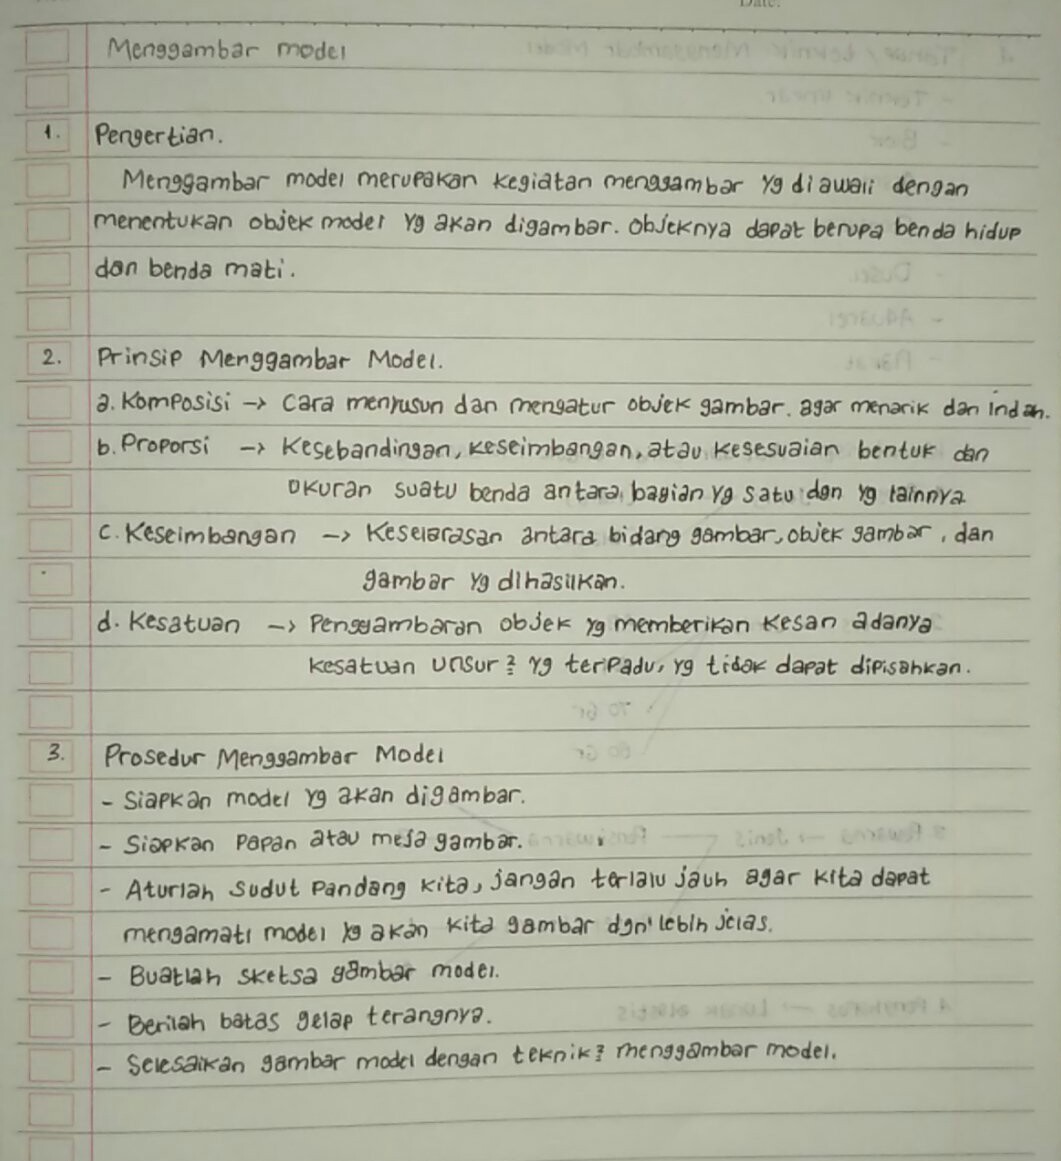 Date:
Menggambar model
1. Pengertian.
Menggambar model merupakan kegiatan menggambar yg diawali dengan
menentukan objek model yg akan digambar. Objeknya dapat berupa benda hidup
dan benda mati.
2. Prinsip Menggambar Model.
a. Komposisi → Cara menyusun dan mengatur objek gambar. agar menarik dan indah.
b. Proporsi → Kesebandingan, keseimbangan, atau kesesuaian bentuk dan
Ukuran suatu benda antara bagian yg satu dan yg lainnya
c. Keseimbangan → Keselarasan antara bidang gambar, objek gambar, dan
gambar yg dihasilkan.
d. Kesatuan → Penggambaran objek yg memberikan kesan adanya
kesatuan unsur² yg terpadu, yg tidak dapat dipisahkan.
3. Prosedur Menggambar Model
- Siapkan model yg akan digambar.
- Siapkan papan atau meja gambar.
- Aturlah sudut pandang kita, jangan terlalu jauh agar kita dapat
mengamati model yg akan kita gambar dgn' lebih jelas.
- Buatlah sketsa gambar model.
- Berilah batas gelap terangnya.
- Selesaikan gambar model dengan teknik² menggambar model.